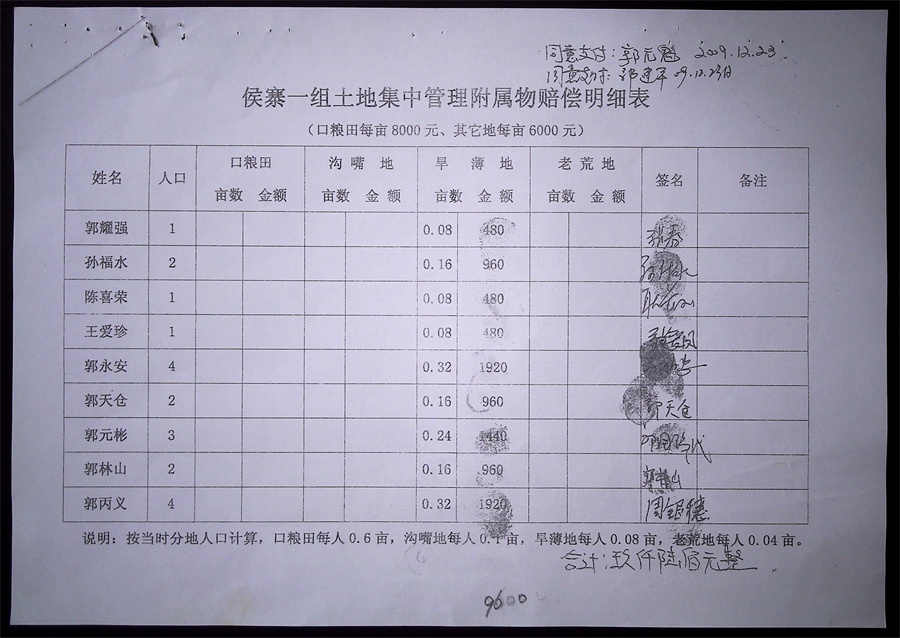 同意支付：郭元魁 2009.12.23.
同意支付：郭建平 09.12.23日
侯寨一组土地集中管理附属物赔偿明细表
（口粮田每亩8000元、其它地每亩6000元）
姓名 人口 口粮田 沟嘴地 旱薄地 老荒地 签名 备注
亩数 金额 亩数 金额 亩数 金额 亩数 金额
郭耀强 1 0.08 480
孙福水 2 0.16 960
陈喜荣 1 0.08 480
王爱珍 1 0.08 480
郭永安 4 0.32 1920
郭天仓 2 0.16 960 郭天仓
郭元彬 3 0.24 1440
郭林山 2 0.16 960 郭林山
郭丙义 4 0.32 1920
说明：按当时分地人口计算，口粮田每人0.6亩，沟嘴地每人0.1亩，旱薄地每人0.08亩，老荒地每人0.04亩。
合计：玖仟陆佰元整.
9600